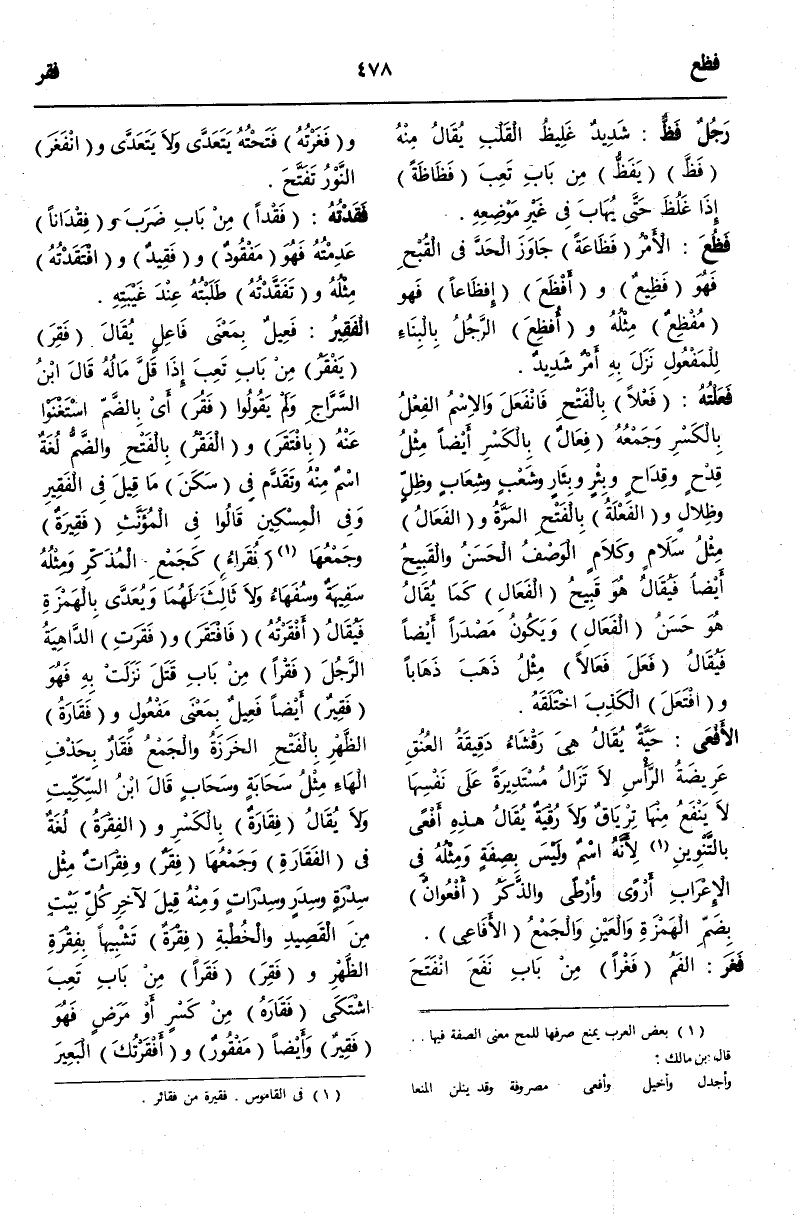 فظع
٤٧٨
فقر
رَجُلٌ فَظٌّ : شَدِيدٌ غَلِيظُ الْقَلْبِ يُقَالُ مِنْهُ
( فَظَّ ) ( يَفَظُّ ) مِن بَابِ تَعِبَ ( فَظَاظَةً )
إِذَا غَلُظَ حَتَّى يُهَابَ فِى غَيْرِ مَوْضِعِهِ .
فَظُعَ : الْأَمْرُ ( فَظَاعَةً ) جَاوَزَ الْحَدَّ فى الْقُبْحِ
فَهُوَ ( فَظِيعٌ ) و ( أَفْظَعَ ) ( إفظَاعاً ) فَهو
( مُفْظِعٌ ) مِثْلُهُ و ( أُفظِعَ ) الرَّجُلُ بِالْبِنَاءِ
لِلْمَفْعُولِ نَزَلَ بِهِ أَمْرٌ شَدِيدٌ .
فَعَلْتُهُ : ( فَعْلاً ) بِالْفَتْحِ فَانْفَعَلَ وَالاِسْمُ الفِعْلُ
بِالْكَسْرِ وَجَمْعُهُ ( فِعَالٌ ) بِالْكَسْرِ أَيْضاً مِثْلُ
قِدْحٍ وقِدَاحٍ وبِئْرٍ وبِئَارٍ وشَعْبٍ وشِعَابٍ وظِلٍّ
وظِلالٍ و ( الفَعْلَةُ ) بِالْفَتْحِ المَرَّةُ و ( الفَعَالُ )
مِثْلُ سَلَامٍ وكَلَامٍ الْوَصْفُ الْحَسَنُ والْقَبِيحُ
أَيْضاً فَيُقَالُ هُوَ قَبِيحُ ( الْفَعَالِ ) كَمَا يُقَالُ
هُوَ حَسَنُ ( الْفَعَالِ ) وَيَكُونُ مَصْدَراً أَيْضاً
فَيُقَالُ ( فَعَلَ فَعَالاً ) مِثْلُ ذَهَبَ ذَهَاباً
و ( افْتَعَلَ ) الْكَذِبَ اخْتَلَقَهُ .
الأَفْعَى : حَيَّةٌ يُقَالُ هِىَ رَقْشَاءُ دَقِيقَةُ الْعُنُقِ
عَرِيضَةُ الرَّأْسِ لاَ تَزَالُ مُسْتَدِيرَةً عَلَى نَفْسِهَا
لاَ يَنْفَعُ مِنْهَا تِرْيَاقٌ وَلاَ رُقْيَةٌ يُقَالُ هـذِهِ أَفْعًى
بِالتَّنْوِينِ (١) لِأَنَّهُ اسْمٌ وَلَيْسَ بِصِفَةٍ وَمِثْلُهُ فِى
الْإِعْرَابِ أَرْوًى وأَرْطًى والذَّكَرُ ( أَفْعُوانٌ )
بِضَمِّ الْهَمْزَةِ وَالْعَيْنِ وَالْجَمْعُ ( الأَفَاعِى ) .
فَغَرَ : الفَمُ ( فَغْراً ) مِنْ بَابِ نَفَعَ انْفَتَحَ
(١) بعض العرب يمنع صرفها للمح معنى الصفة فيها . .
قال بن مالك :
وأجدل وأخيل وأفعى مصروفة وقد ينلن المنعا
و ( فَغَرْتُهُ ) فَتَحْتُهُ يَتَعَدَّى وَلاَ يَتَعَدَّى و ( انْفَغَرَ )
النَّوْرُ تَفَتَّحَ .
فَقَدْتُهُ : ( فَقْداً ) مِنْ بَابِ ضَرَبَ و ( فِقْدَاناً )
عَدِمْتُهُ فَهُوَ ( مَفْقُودٌ ) و ( فَقِيدٌ ) و ( افْتَقَدْتُهُ )
مِثْلُهُ و ( تَفَقَّدْتُهُ ) طَلَبْتُهُ عِنْدَ غَيْبَتِهِ .
الْفَقِيرُ : فَعِيلٌ بِمَعْنَى فَاعِلٍ يُقَالُ ( فَقِرَ )
( يَفْقَرُ ) مِنْ بَابِ تَعِبَ إِذَا قَلَّ مَالُهُ قَالَ ابْنُ
السَّرَّاجِ وَلَمْ يَقُولُوا ( فَقُرَ ) أَىْ بِالضَّمِّ اسْتَغْنَوْا
عَنْهُ ( بِافْتَقَرَ ) و ( الْفَقْرُ ) بِالْفَتْحِ والضَّمُّ لُغَةٌ
اسْمٌ مِنْهُ وتَقَدَّم فِى ( سَكَنَ ) مَا قِيلَ فِى الْفَقِيرِ
وَفِى الْمِسْكِينِ قَالُوا فِى الْمُؤَنَّثِ ( فَقِيرَةٌ )
وجَمْعُهَا (١) ( فُقَراءُ ) كَجَمْعِ الْمُذَكّرِ وَمِثْلُهُ
سَفِيهَةٌ وسُفَهَاءُ وَلاَ ثَالِثَ لَهُمَا وَيُعَدَّى بِالْهَمْزَةِ
فَيُقَالُ ( أَفْقَرْتُهُ ) ( فَافْتَقَرَ ) و ( فَقَرَتِ ) الدَّاهِيَةُ
الرَّجُلَ ( فَقْراً ) مِنْ بَابِ قَتَلَ نَزَلَتْ بِهِ فَهُوَ
( فَقِيرٌ ) أَيْضاً فَعِيلٌ بِمَعْنَى مَفْعُولٍ و ( فَقَارَةُ )
الظَّهْرِ بِالْفَتْحِ الخَرَزَةُ والْجَمْعُ فَقَارٌ بِحَذْفِ
الْهَاءِ مِثْلُ سَحَابَةٍ وسَحَابٍ قَالَ ابْنُ السِّكِّيتِ
وَلاَ يُقَالُ ( فِقَارَةٌ ) بِالْكَسْرِ و ( الفِقْرَةُ ) لُغَةٌ
فى ( الْفَقَارَةِ ) وَجَمْعُهَا ( فِقَرٌ ) وفِقْرَاتٌ مِثْل
سِدْرَةٍ وسِدَرٍ وسِدْرَاتٍ وَمِنْهُ قِيلَ لآخِرِ كُلِّ بَيْتٍ
مِنَ الْقَصِيدِ والْخُطْبَةِ ( فِقْرَةٌ ) تَشْبِيهاً بِفِقْرَةِ
الظَّهْرِ و ( فَقِرَ ) ( فَقَراً ) مِنْ بَابِ تَعِبَ
اشْتَكَى ( فَقَارَهُ ) مِنْ كَسْرٍ أَوْ مَرَضٍ فَهُوَ
( فَقِيرٌ ) وَأَيْضاً ( مَفْقُورٌ ) و ( أَفْقَرْتُكَ ) الْبَعِيرَ
(١) فى القاموس . فقيرة من فقائر .